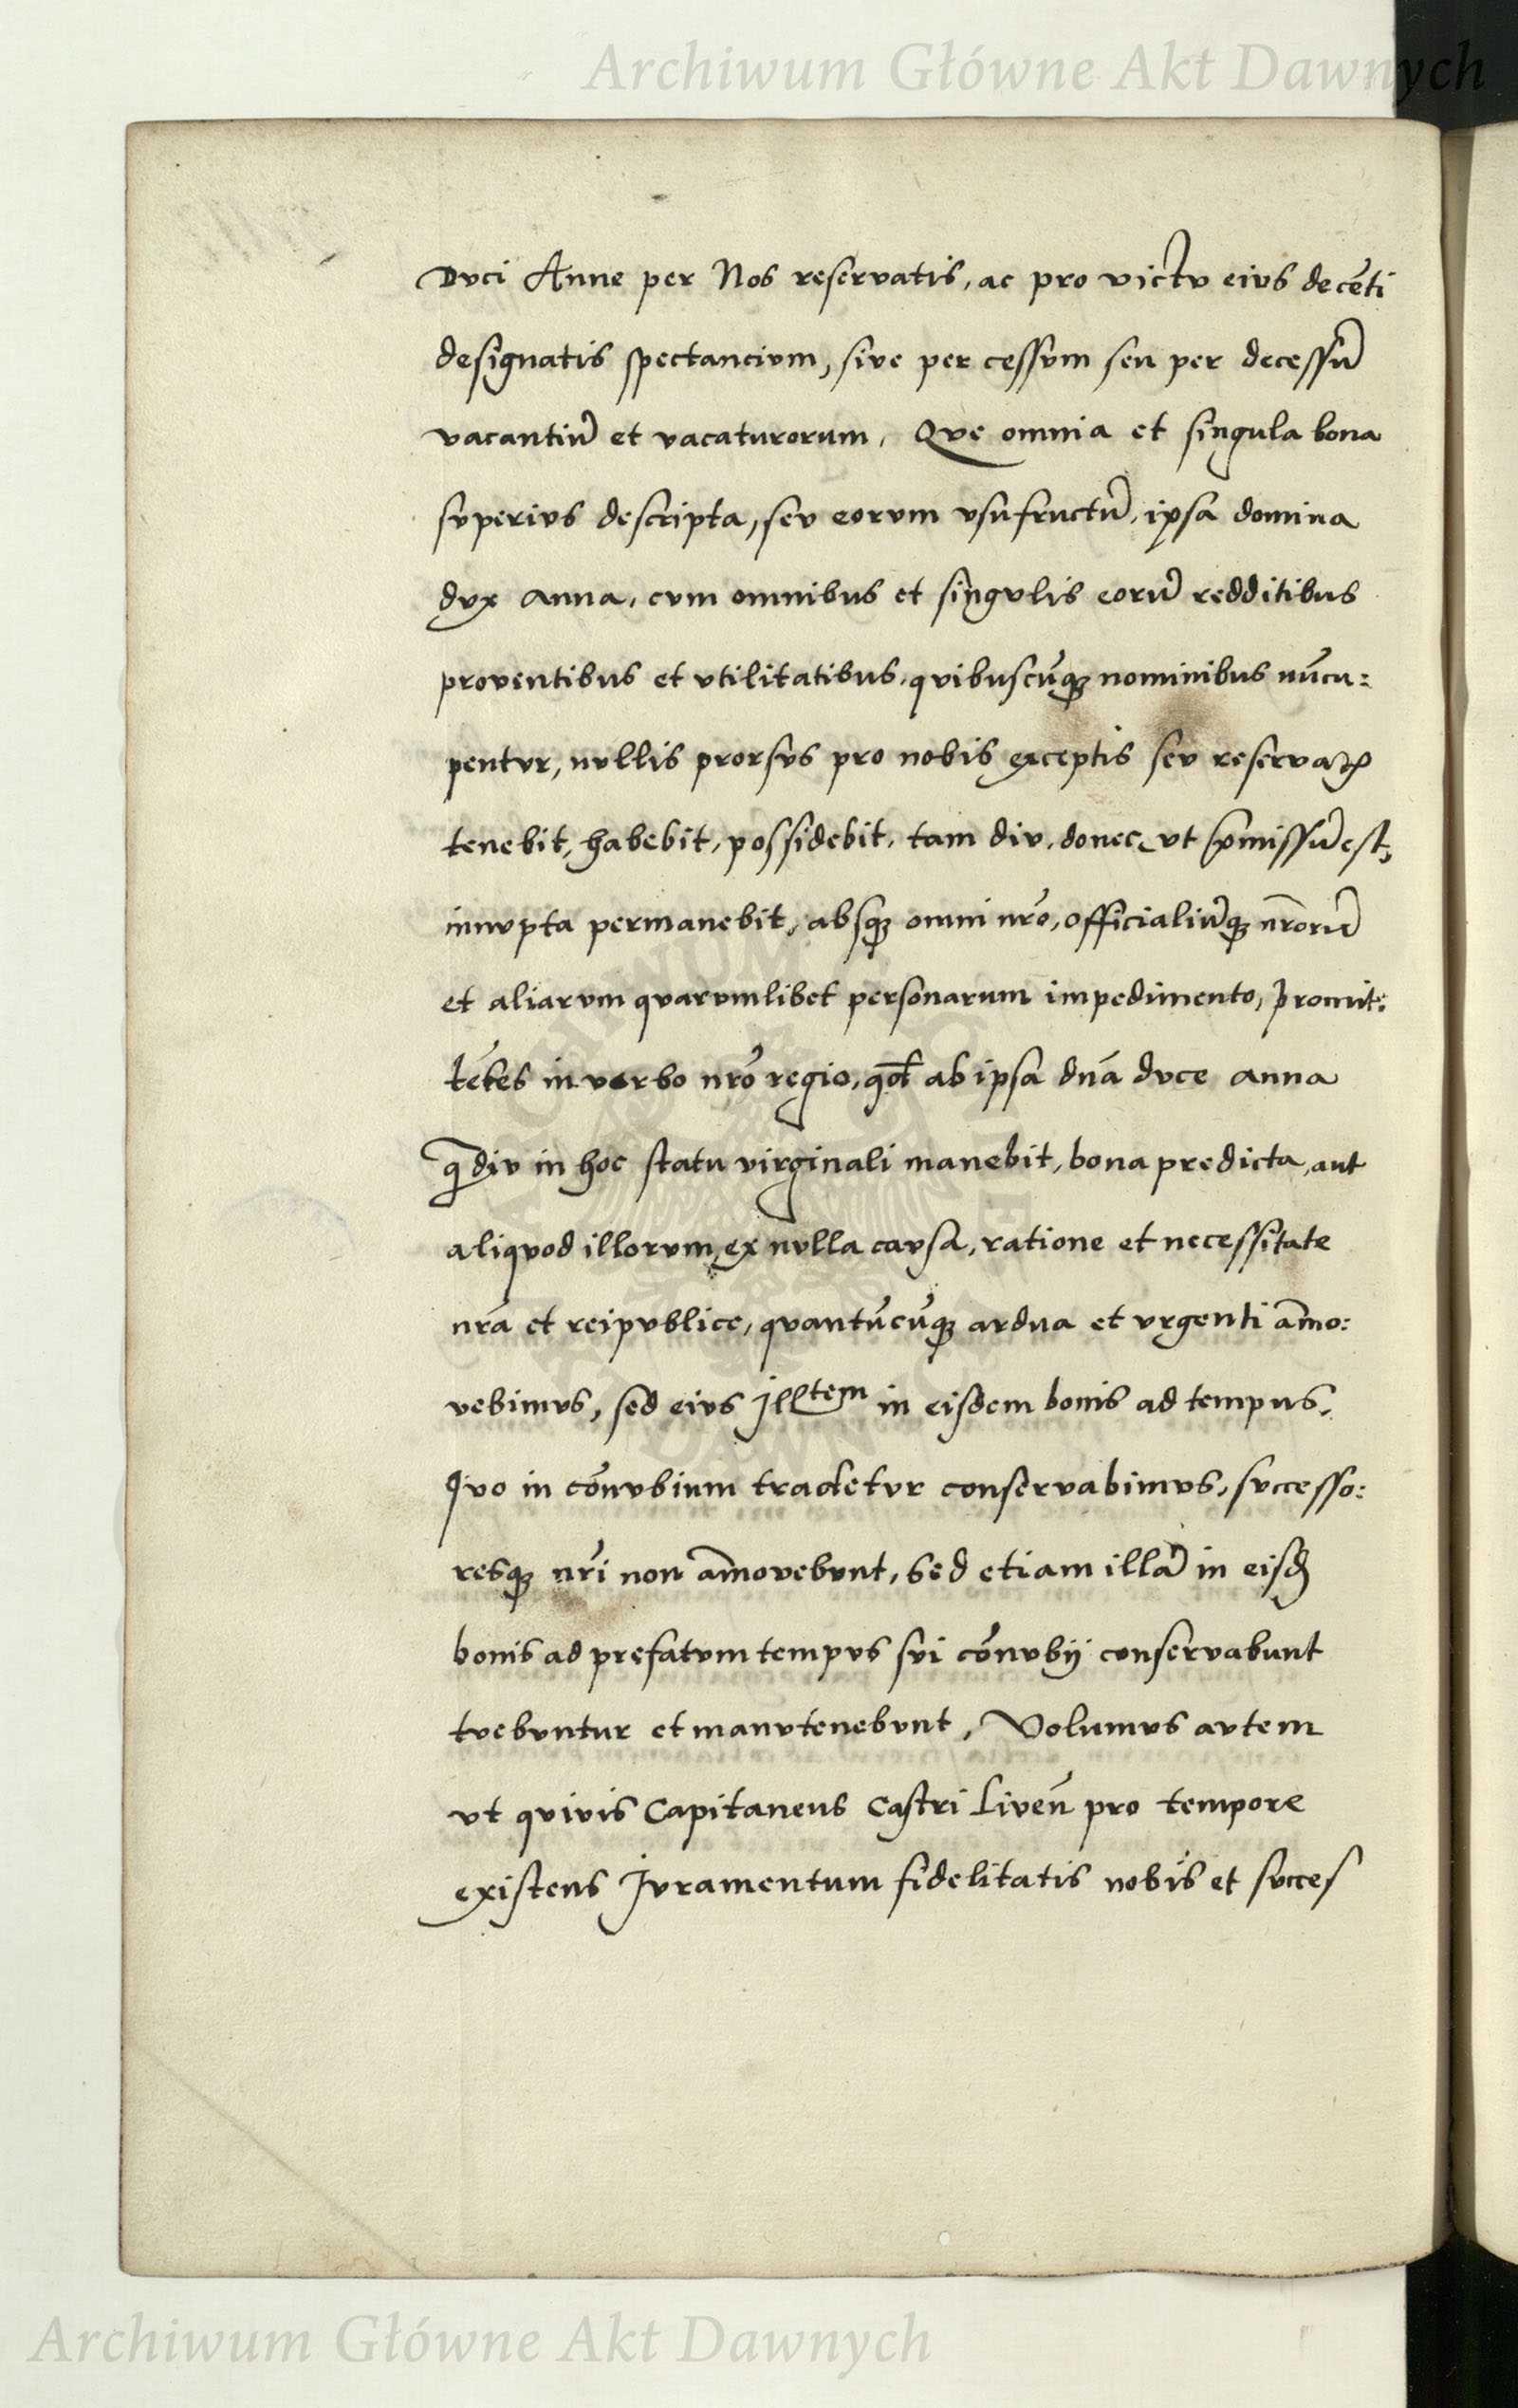 Archiwum Główne Akt Dawnych
Dvci Anne per Nos reservatis, ac pro victv eivs decēti
designatis spectancivm, sive per cessvm seu per decessū
vacantiū et vacaturorum, Qve omnia et singula bona
svperivs descripta, sev eorvm vsufructū, ipsa domina
dvx anna, cvm omnibus et singvlis eorū redditibus
proventibus et vtilitatibus, qvibuscūqꝫ nominibus nūcu:
pentvr, nvllis prorsvs pro nobis exceptis sev reservatꝭ
tenebit, habebit, possidebit, tam div, donec, vt p̄missū est,
innvpta permanebit, absqꝫ omni nr̄o, officialiūqꝫ nr̄orū
et aliarvm qvarvmlibet personarum impedimento, promit:
tētes in verbo nr̄o regio, qd̄ ab ipsa dn̄a dvce anna
q̄div in hoc statu virginali manebit, bona predicta, aut
aliqvod illorvm, ex nvlla cavsa, ratione et necessitate
nr̄a et reipvblice, qvantūcūqꝫ ardua et vrgenti am̄o:
vebimvs, sed eivs Illtem in eisdem bonis ad tempus,
Qvo in cōnvbium tradetvr conservabimvs, svccesso:
resqꝫ nr̄i non am̄ovebvnt, sed etiam illā in eisd̄
bonis ad prefatvm tempvs svi cōnvbij conservabunt
tvebvntur et manvtenebvnt, Volumvs avtem
vt qvivis Capitaneus Castri Liveñ pro tempore
existens Jvramentum fidelitatis nobis et svcces
Archiwum Główne Akt Dawnych